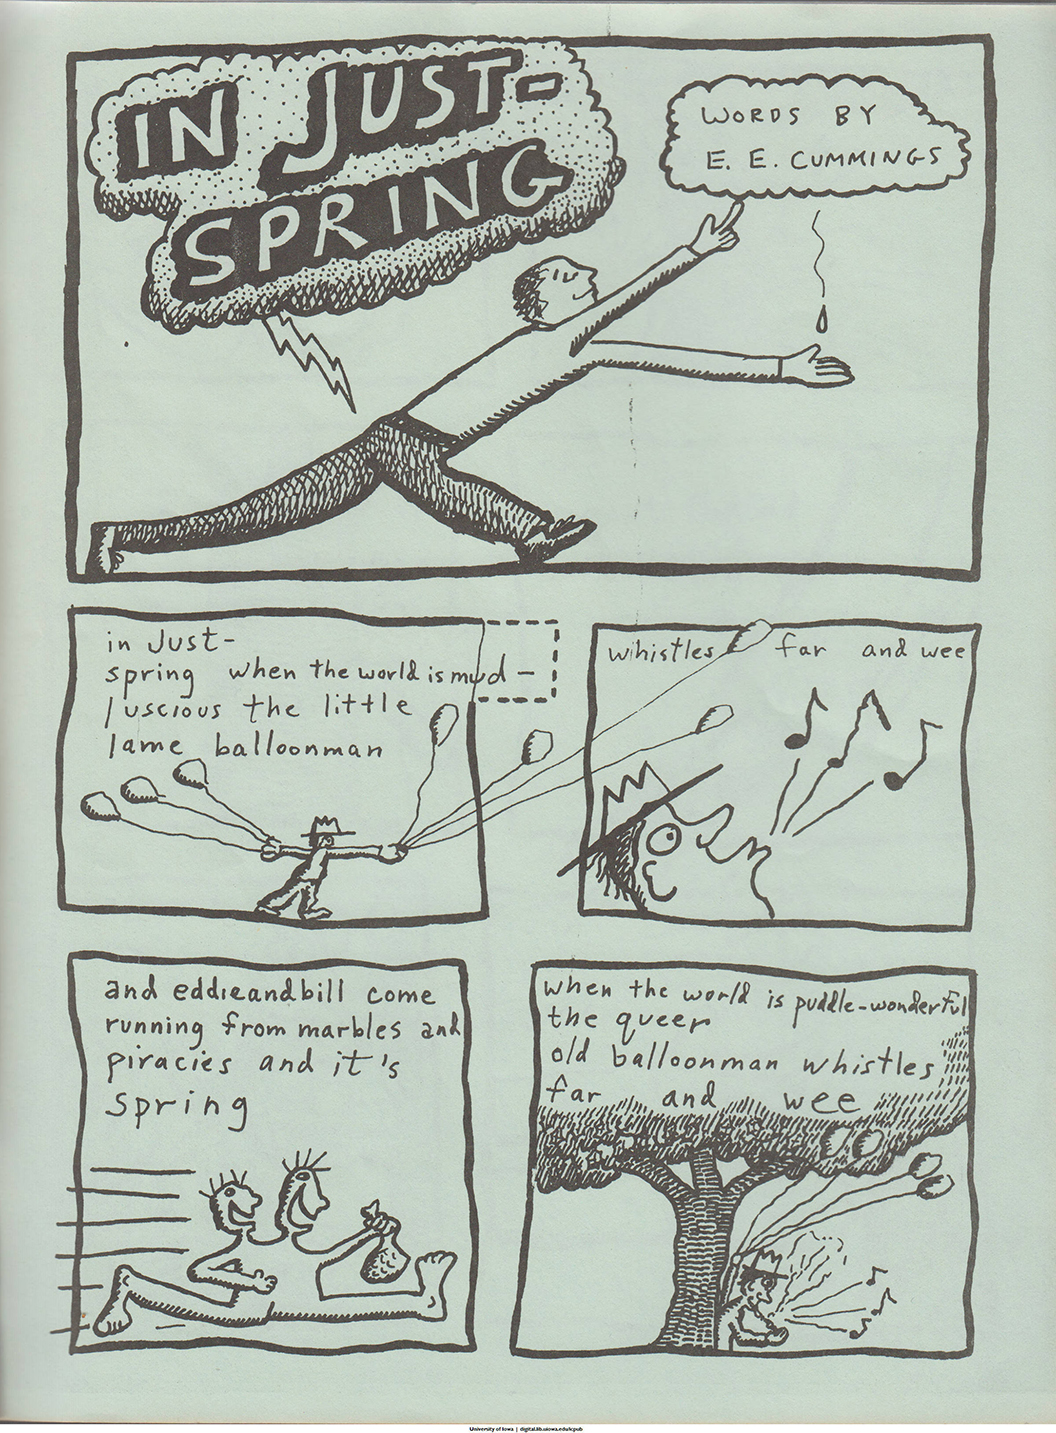 IN JUST-
SPRING
WORDS BY
E. E. CUMMINGS
in Just-
spring when the world is mud-
luscious the little
lame balloonman
whistles far and wee
and eddieandbill come
running from marbles and
piracies and it's
spring
when the world is puddle-wonderful
the queer
old balloonman whistles
far and wee
University of Iowa | digital.lib.uiowa.edu/icpub